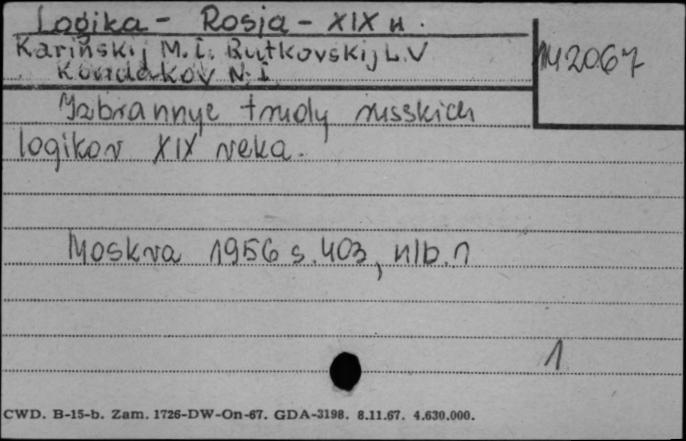 Logika - Rosja - XIX w.
Kariński M. I. Rutkovskij L.V
Kondakov N. I.
M2067
Izbrannye trudy russkich
logikov XIX veka.
Moskva 1956 s. 403, nlb. 1
1
CWD. B-15-b. Zam. 1726-DW-On-67. GDA-3198. 8.11.67. 4.630.000.